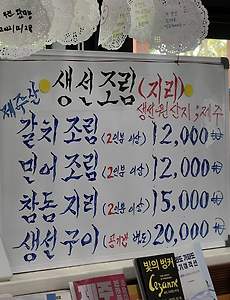 생선조림(지리)
제주산
생선원산지;제주
갈치 조림 (2인분 이상) 12,000
민어 조림 (2인분 이상) 12,000
참돔 지리 (2인분 이상) 15,000
생선 구이 (공기밥 별도) 20,000
빛의 벙커
Cezanne